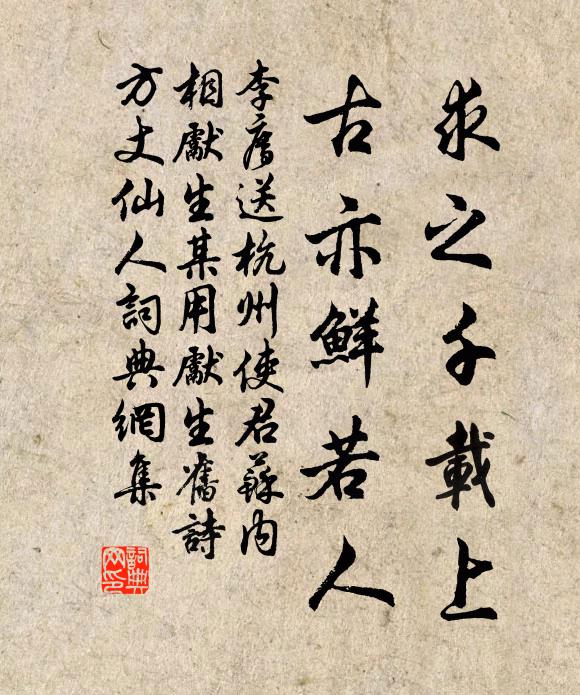 求之千載上
古亦鮮若人
李廌送杭州使君蘇内
相獻生某用獻生舊詩
方丈仙人詞典網集
詞典
网印